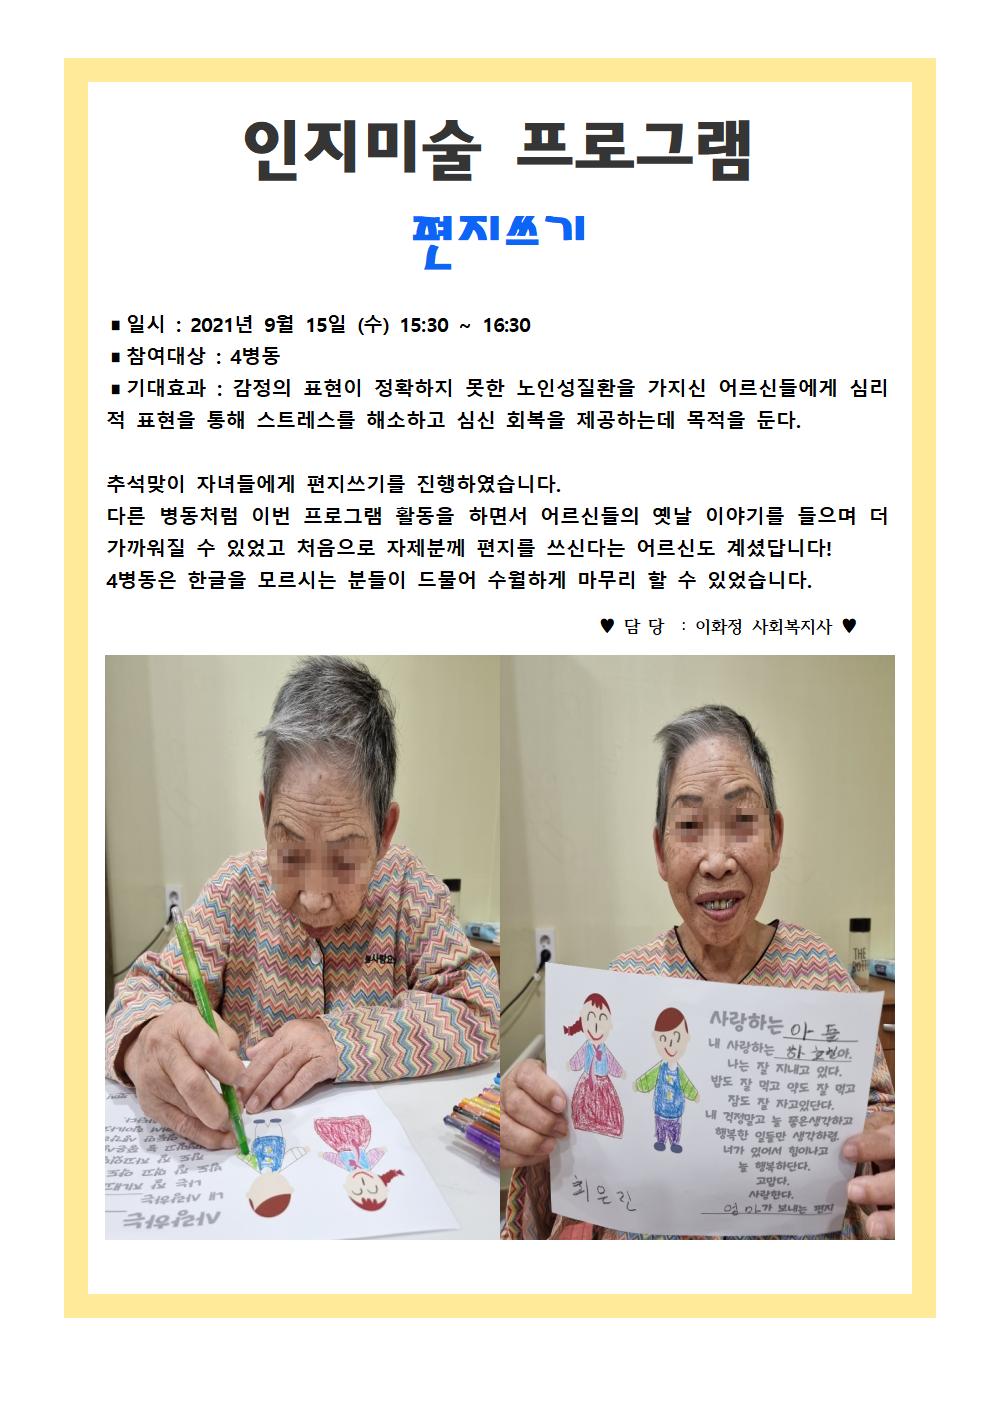 인지미술 프로그램
편지쓰기
■ 일시 : 2021년 9월 15일 (수) 15:30 ~ 16:30
■ 참여대상 : 4병동
■ 기대효과 : 감정의 표현이 정확하지 못한 노인성질환을 가지신 어르신들에게 심리
적 표현을 통해 스트레스를 해소하고 심신 회복을 제공하는데 목적을 둔다.
추석맞이 자녀들에게 편지쓰기를 진행하였습니다.
다른 병동처럼 이번 프로그램 활동을 하면서 어르신들의 옛날 이야기를 들으며 더
가까워질 수 있었고 처음으로 자제분께 편지를 쓰신다는 어르신도 계셨답니다!
4병동은 한글을 모르시는 분들이 드물어 수월하게 마무리 할 수 있었습니다.
♥ 담 당 : 이화정 사회복지사 ♥
사랑하는
내 사랑하는
사랑하는 아들
내 사랑하는
나는 잘 지내고 있다.
밥도 잘 먹고 약도 잘 먹고
잠도 잘 자고있단다.
내 걱정말고 늘 좋은생각하고
행복한 일들만 생각하렴.
너가 있어서 힘이나고
늘 행복하단다.
고맙다.
사랑한다.
엄마가 보내는 편지
THE